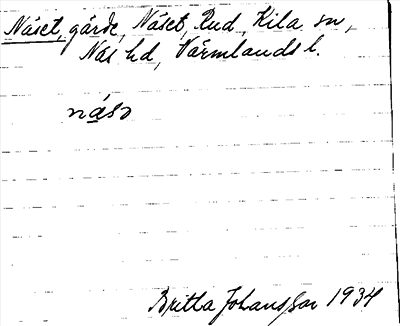 Näset, gårde, Näset, Rud, Kila sn,
Näs hd, Värmlands l.
näsə
Britta Johansson 1934